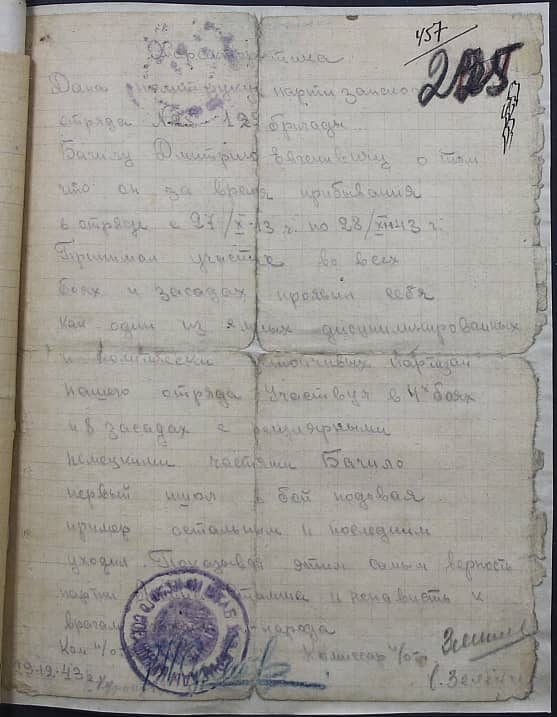 457
Характеристика
Дана политруку партизанского
отряда № 25 12й бригады
Бачилу Дмитрию Евгеневичу о том
что он за время прибывания
в отряде с 27/X-43 г. по 28/XII-43 г.
Принимал участие во всех
боях и засадах проявил себя
как один из дисциплинированных
и политически стойчивых партизан
нашего отряда Участвуя в 4х боях
и 8 засадах с регулярными
немецкими частями Бачило
первый шол в бой подавая
пример остальным и последним
уходил Показывая этим самым верность
партии и ненависть к
врагам народа
Ком ч/от Комиссар ч/от
29.12.43 г. (.Зеленч